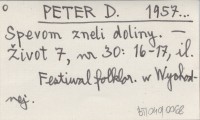 PETER D. 1957...
Spevom zneli doliny. —
Život 7, nr 30: 16-17, il.
Festiwal folklor. w Wychod-
nej.